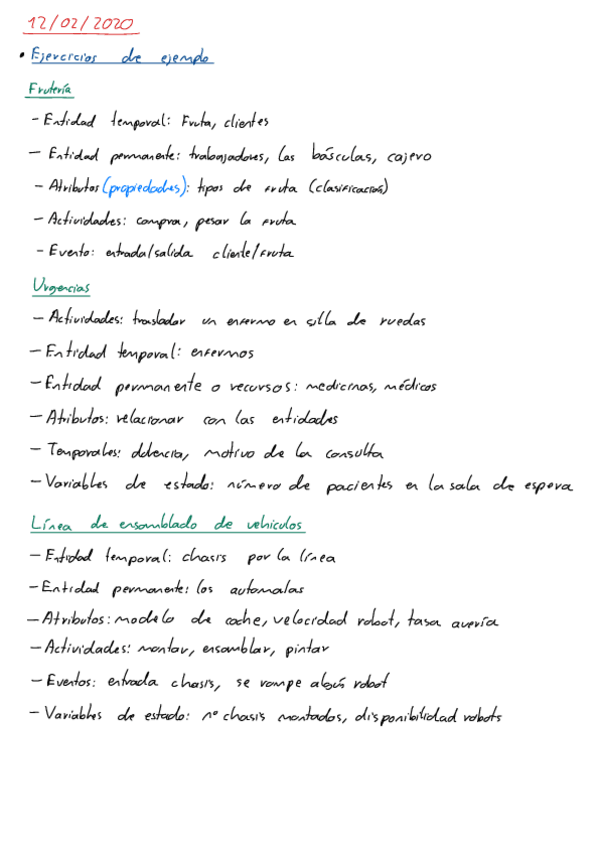 12/02/2020
• Ejercicios de ejemplo
Frutería
- Entidad temporal: Fruta, clientes
- Entidad permanente: trabajadores, las básculas, cajero
- Atributos (propiedades): tipos de fruta (clasificación)
- Actividades: compra, pesar la fruta
- Evento: entrada/salida cliente/fruta
Urgencias
- Actividades: trasladar un enfermo en silla de ruedas
- Entidad temporal: enfermos
- Entidad permanente o recursos: medicinas, médicos
- Atributos: relacionar con las entidades
- Temporales: dolencia, motivo de la consulta
- Variables de estado: número de pacientes en la sala de espera
Línea de ensamblado de vehiculos
- Entidad temporal: chasis por la línea
- Entidad permanente: los automalas
- Atributos: modelo de coche, velocidad robot, tasa avería
- Actividades: montar, ensamblar, pintar
- Eventos: entrada chasis, se rompe algún robot
- Variables de estado: nº chasis montados, disponibilidad robots